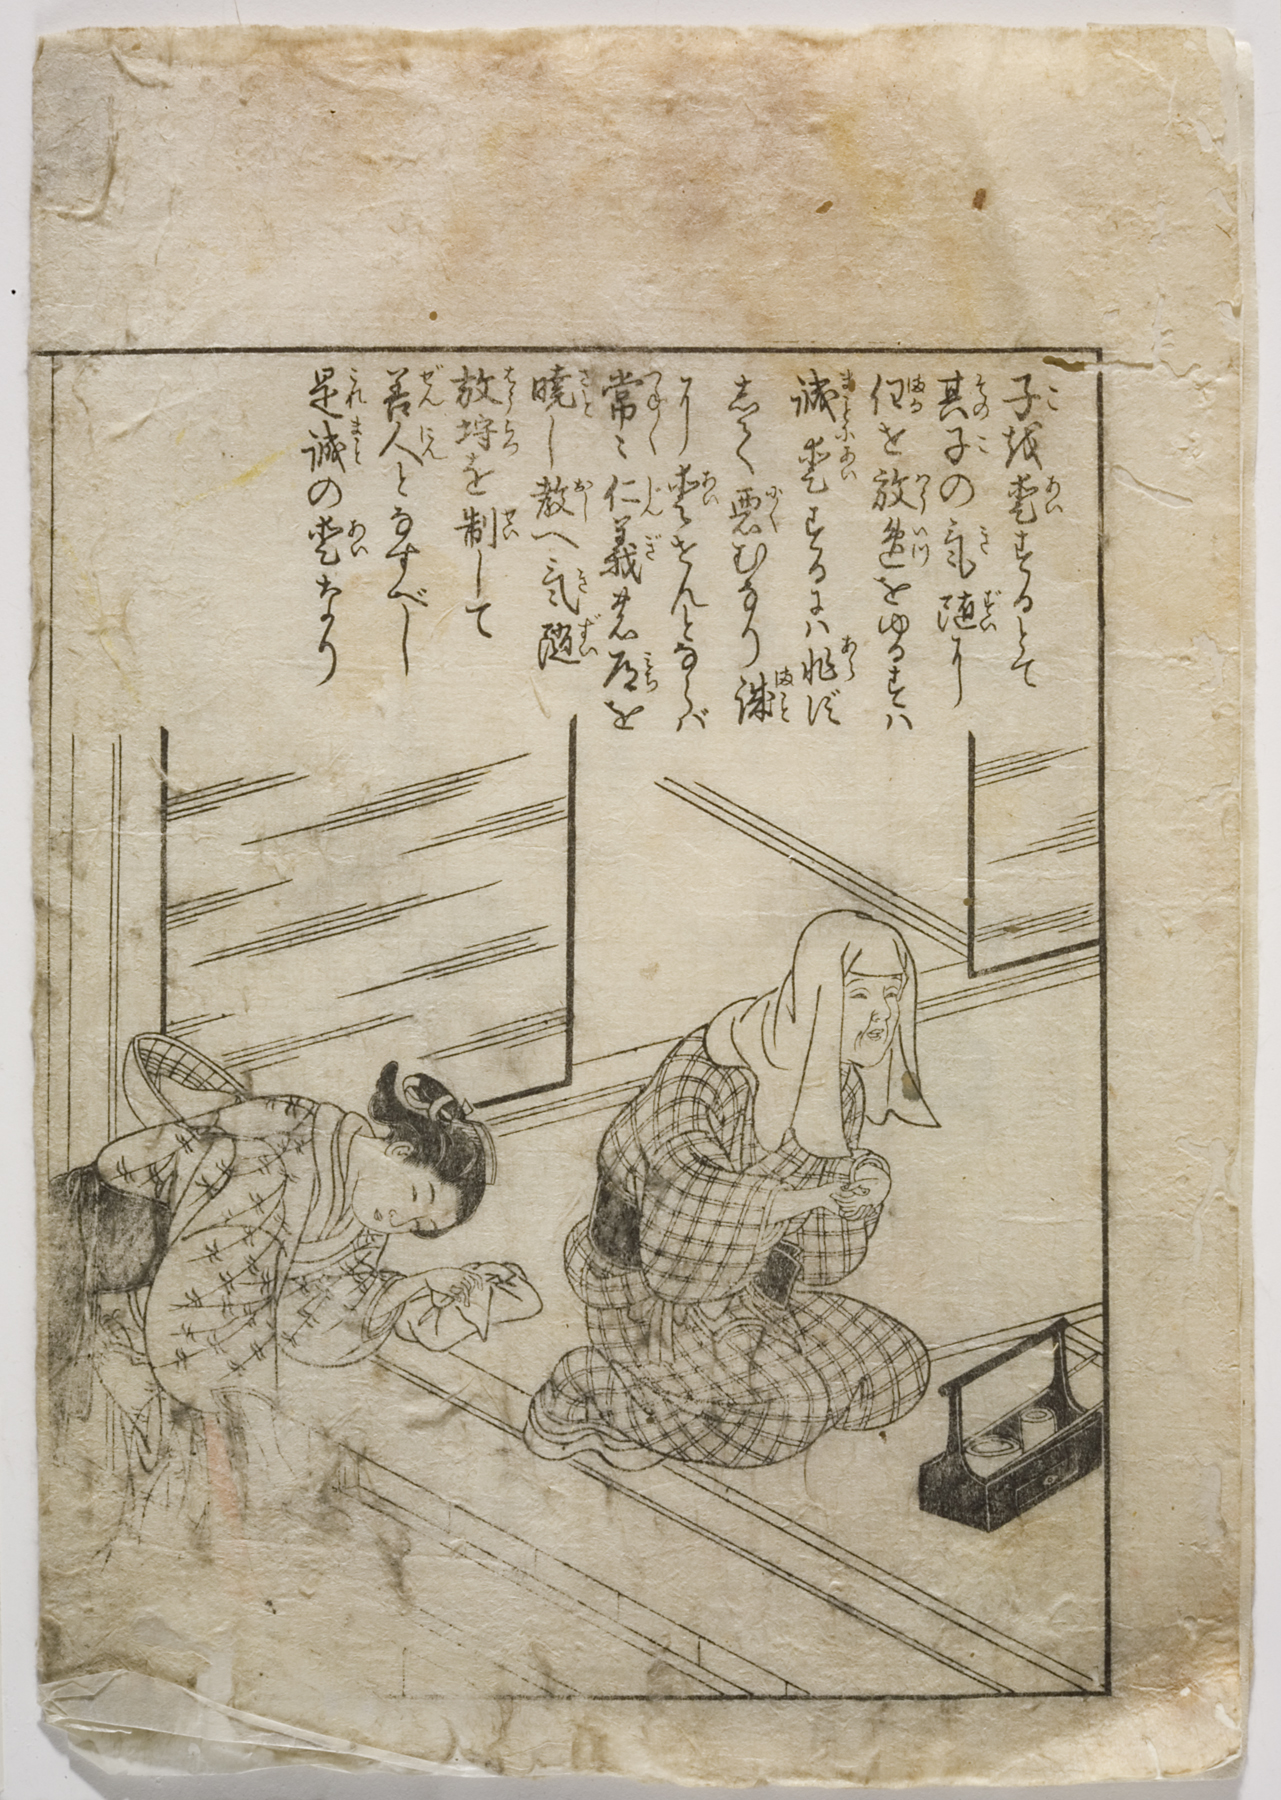 子を愛するとて
其子の気随に
任せ放逸をゆるすハ
誠愛するにハ非ず
して悪むなり誠
に愛せんとならバ
常に仁義の道を
暁し教へ気随
放埒を制して
善人となすべし
是誠の愛なり